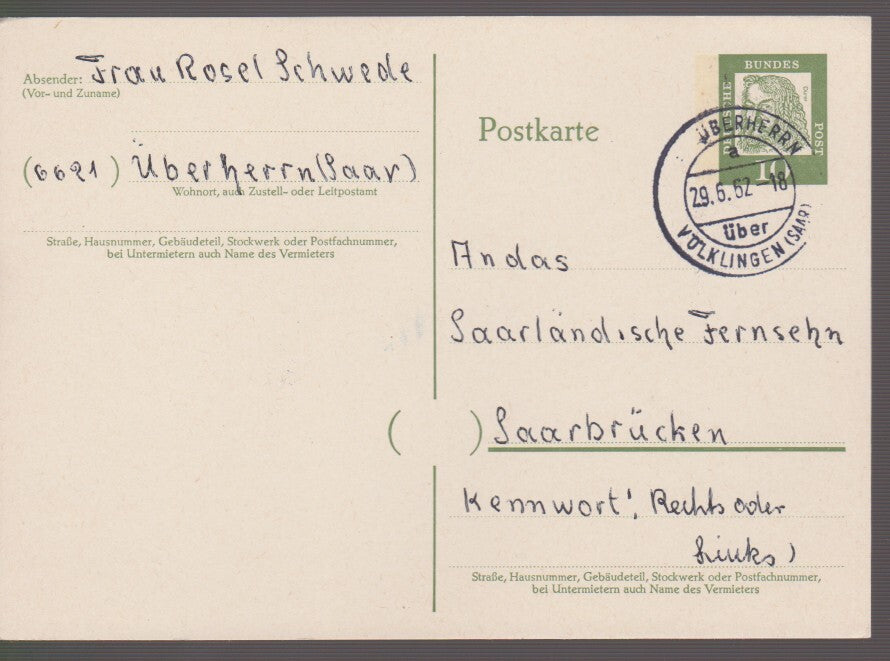 Absender: Frau Rosel Schwede
(Vor- und Zuname)
(6621) Überherrn (Saar)
Wohnort, auch Zustell- oder Leitpostamt
Straße, Hausnummer, Gebäudeteil, Stockwerk oder Postfachnummer,
bei Untermietern auch Name des Vermieters
Postkarte
DEUTSCHE BUNDES POST
Dürer
10
ÜBERHERRN
a
29.6.62-18
über
VÖLKLINGEN (SAAR)
An das
Saarländische Fernsehn
( ) Saarbrücken
Kennwort! Rechts oder
Links)
Straße, Hausnummer, Gebäudeteil, Stockwerk oder Postfachnummer,
bei Untermietern auch Name des Vermieters